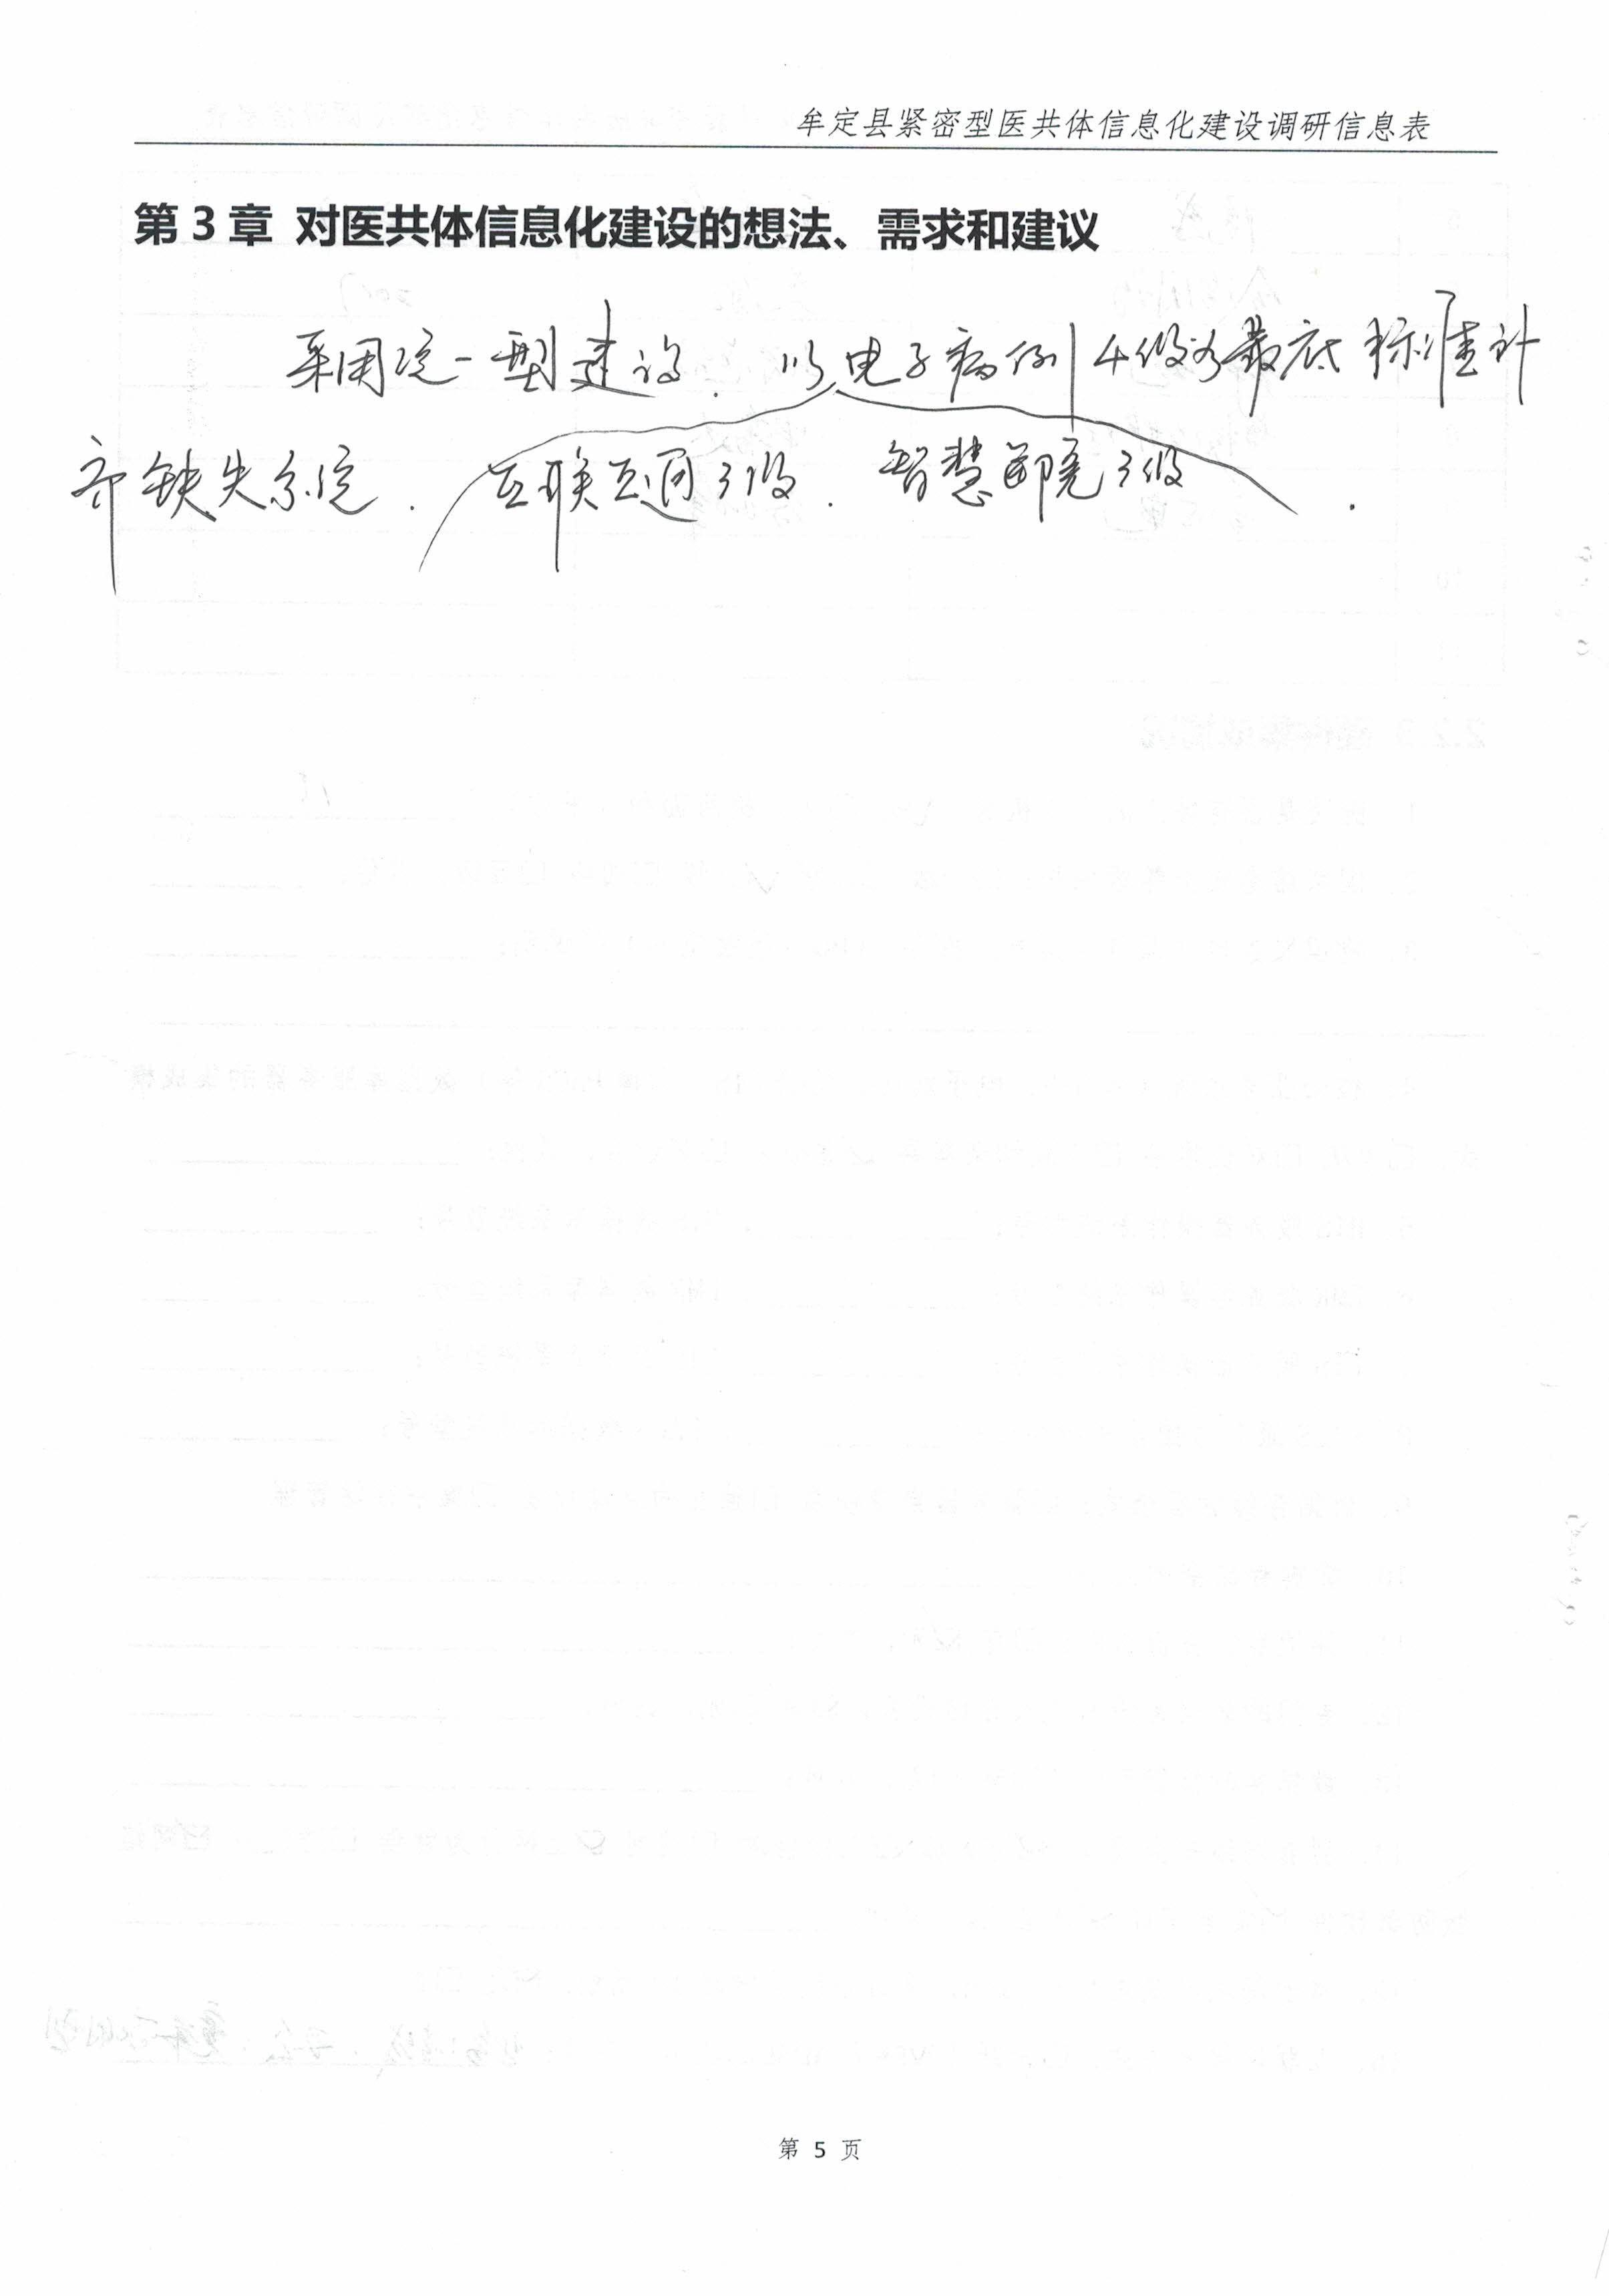 牟定县紧密型医共体信息化建设调研信息表
第 3 章 对医共体信息化建设的想法、需求和建议
采用统一型建设. 以电子病例4级为最底标准补
齐缺失系统. 互联互通3级. 智慧医院3级.
第 5 页